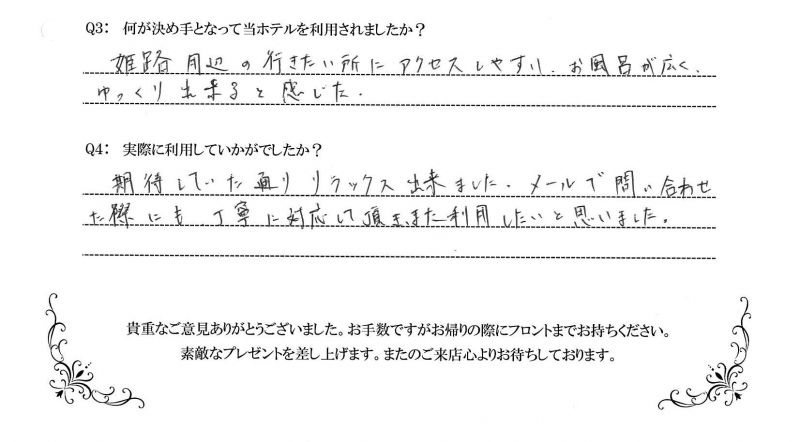 Q3: 何が決め手となって当ホテルを利用されましたか？
姫路周辺の行きたい所にアクセスしやすい、お風呂が広く、
ゆっくり出来ると感じた。
Q4: 実際に利用していかがでしたか？
期待していた通りリラックス出来ました。メールで問い合わせ
た際にも丁寧に対応して頂き、また利用したいと思いました。
貴重なご意見ありがとうございました。お手数ですがお帰りの際にフロントまでお持ちください。
素敵なプレゼントを差し上げます。またのご来店心よりお待ちしております。